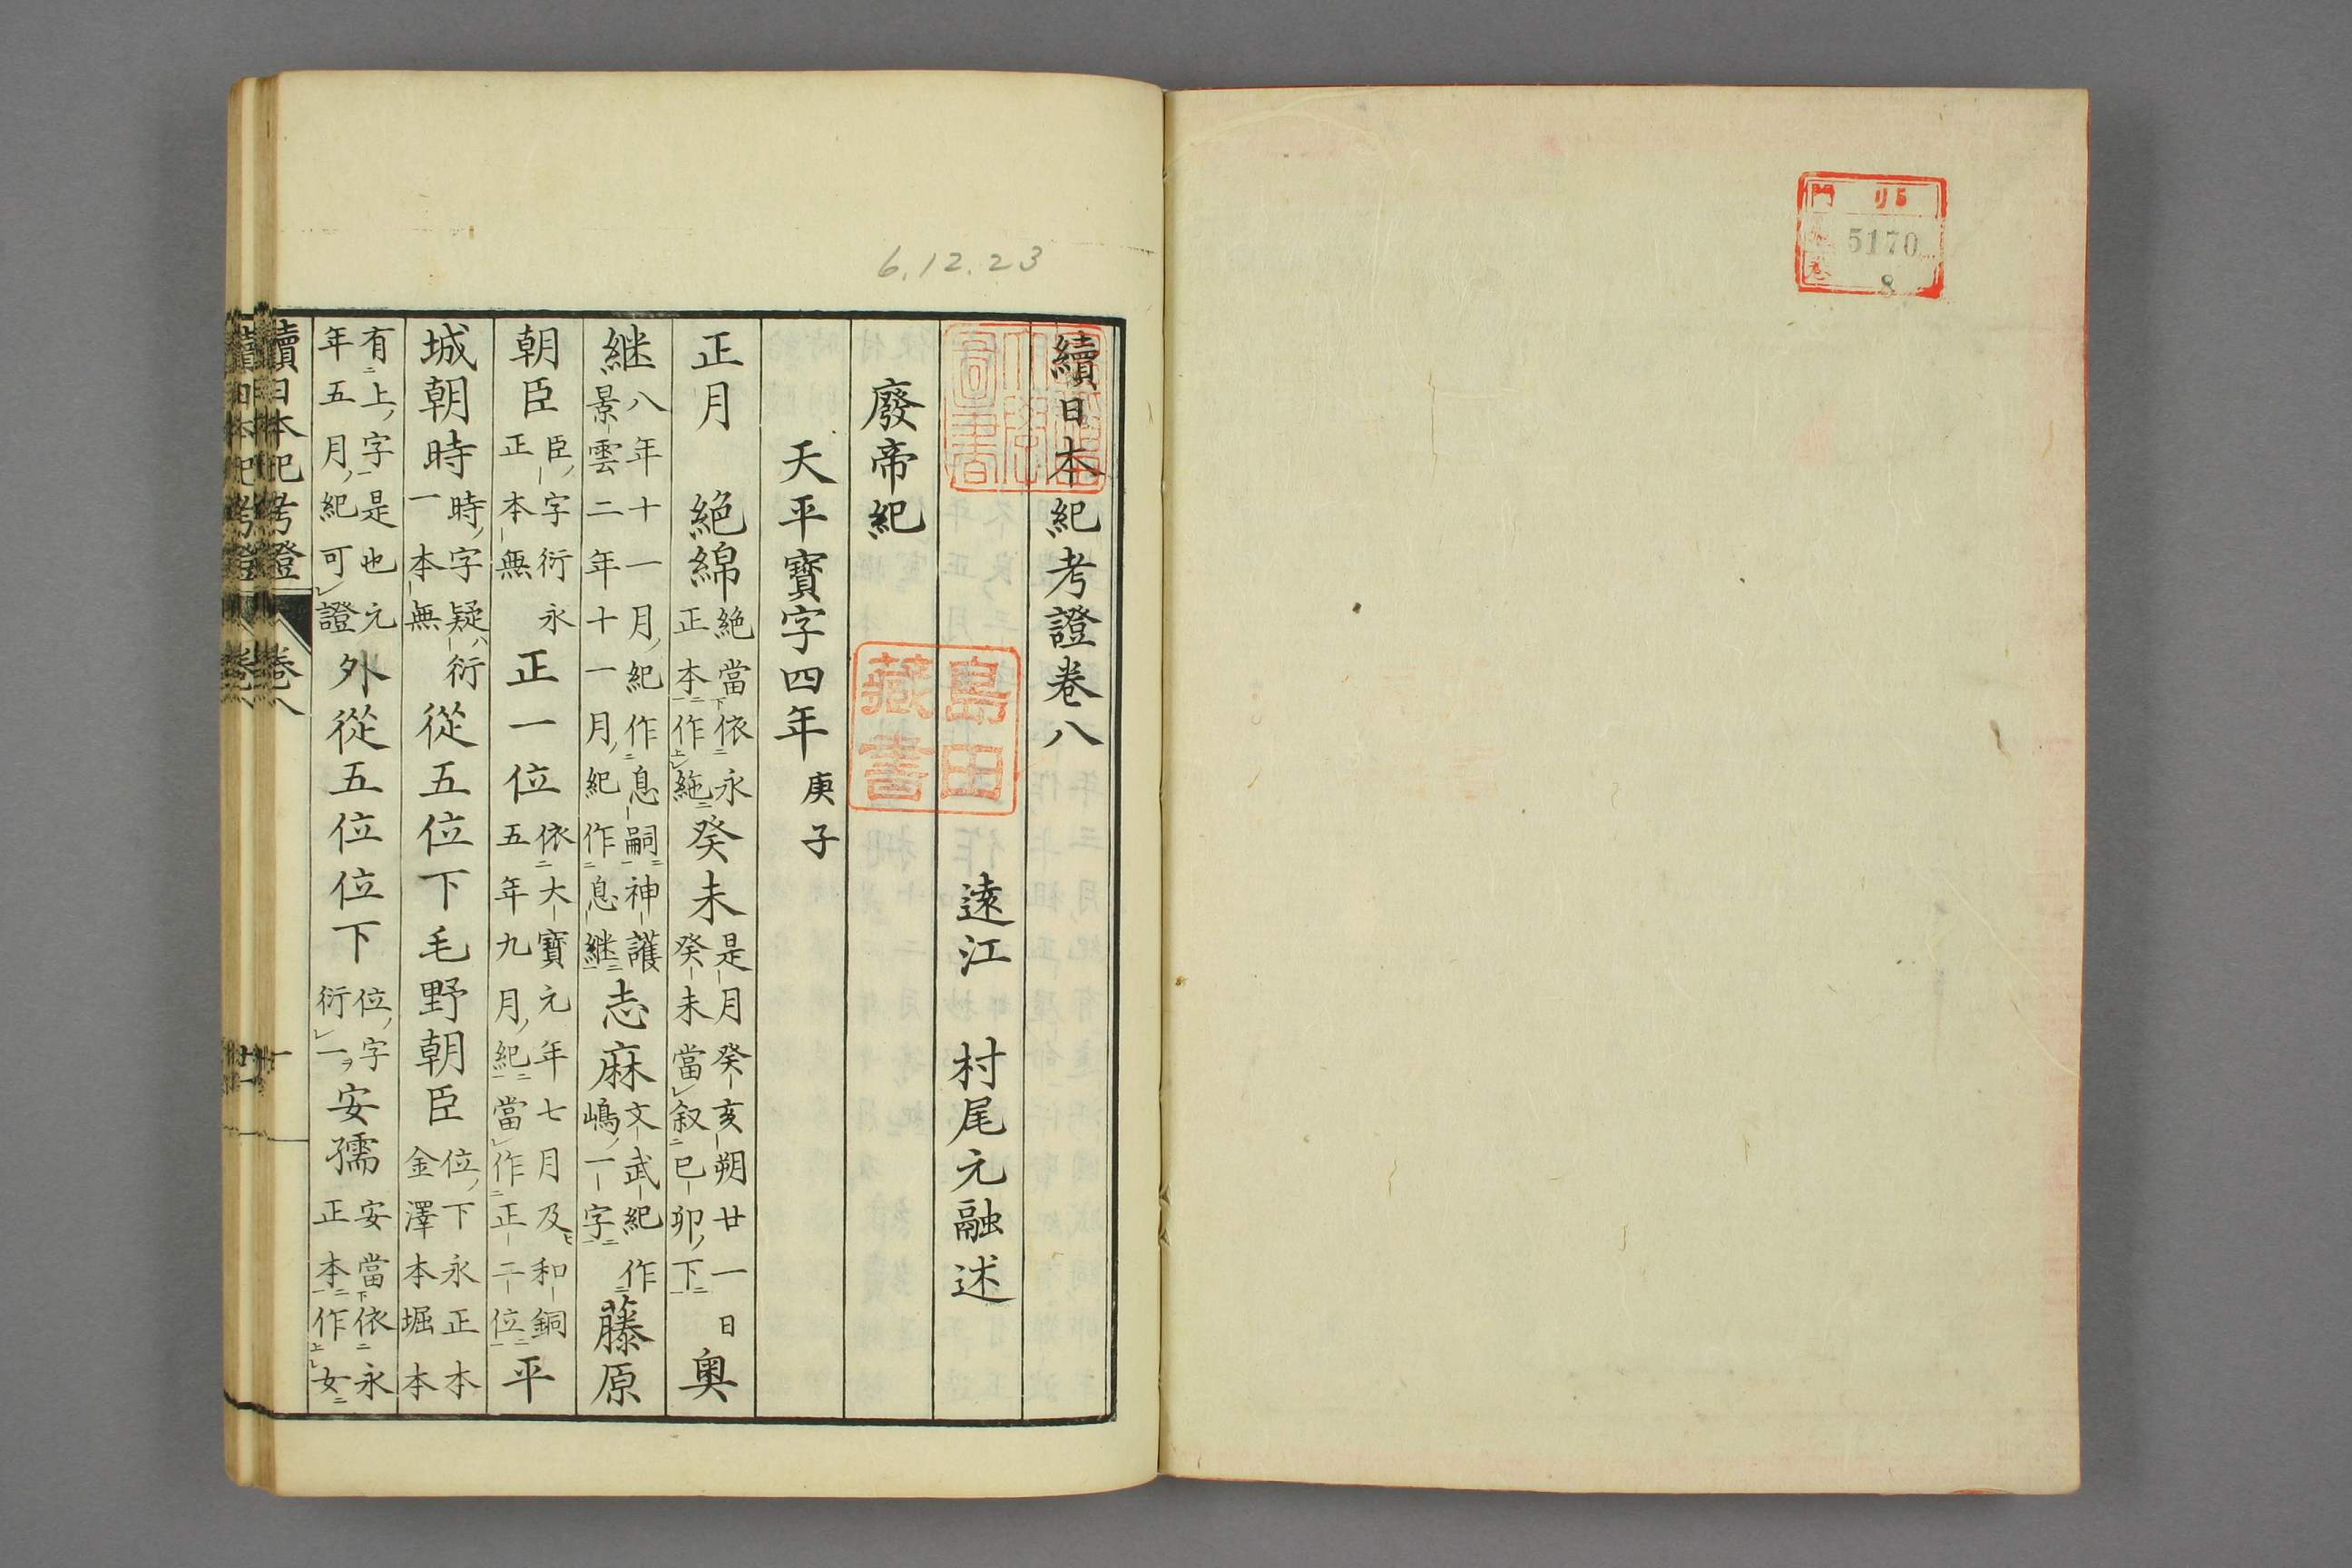 門 リ5
5170
8
6.12.23
續日本紀考證卷八
遠江 村尾元融述
島田
藏書
廢帝紀
天平寶字四年 庚子
正月 絶綿 絶當依永正本作絁 癸未 是月癸亥朔廿一日癸未當叙己卯下 奥
継 八年十一月紀作息嗣神護景雲二年十一月紀作息継 志麻 文武紀作嶋一字 藤原
朝臣 臣字衍永正本無 正一位 依大寶元年七月及和銅五年九月紀當作正二位 平
城朝時 時字疑衍一本無 從五位下毛野朝臣 位下永正本金澤本堀本
有上字是也元年五月紀可證 外從五位位下 位字衍一 安孺 安當依永正本作女
續日本紀考證 卷八 一